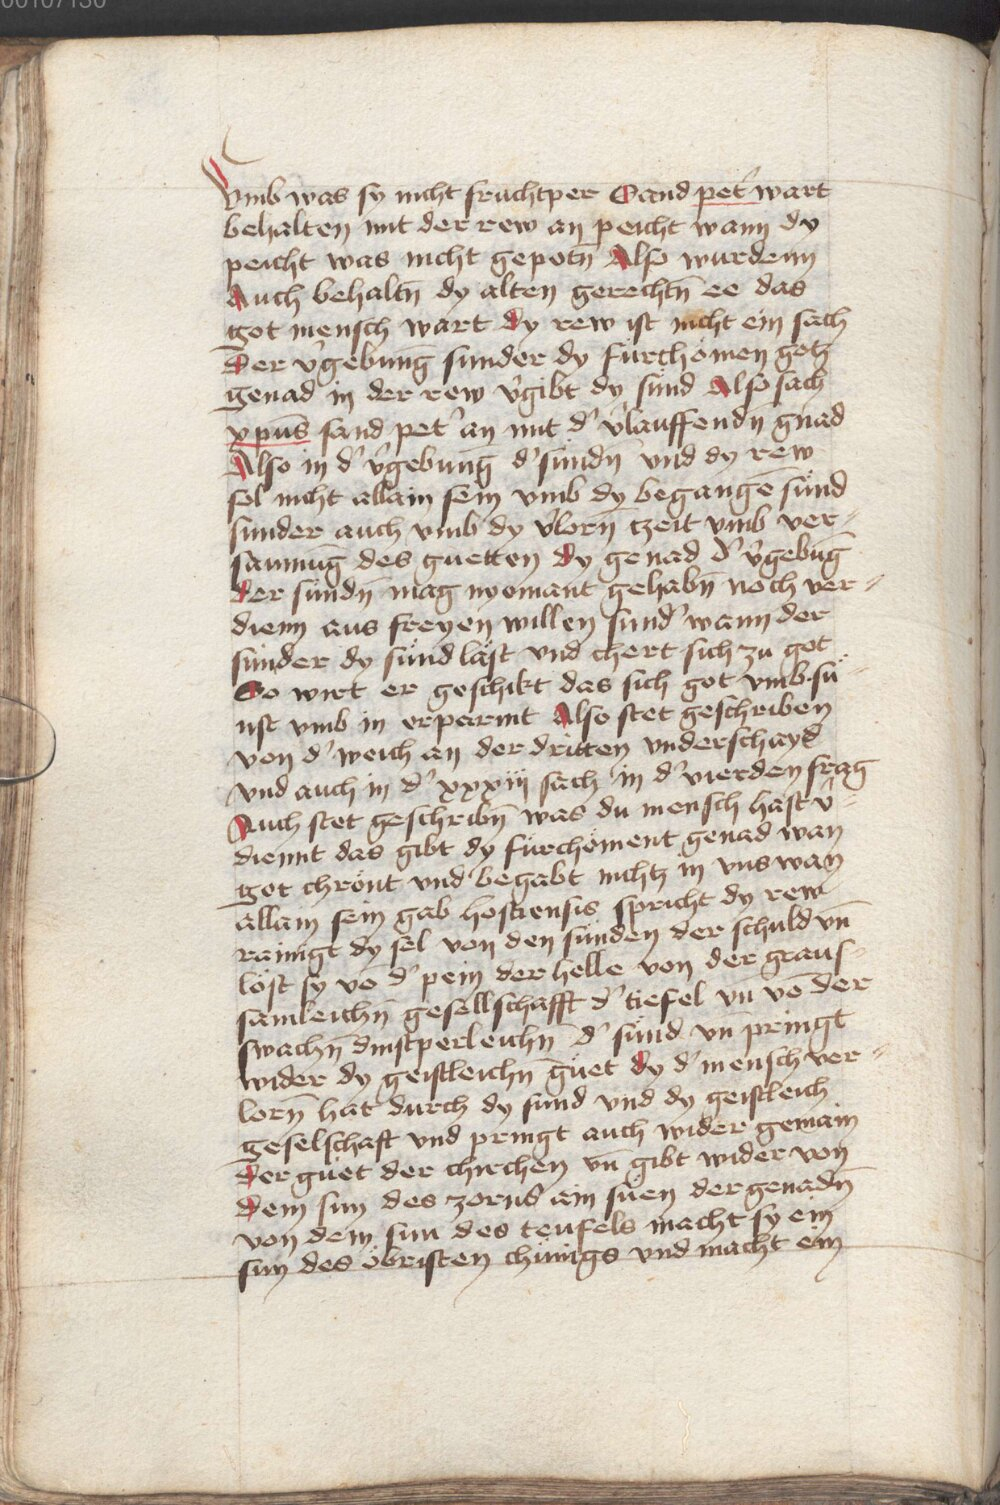 00107130
vmb was sy nicht fruchtper Sand pet͛ wart
behalten mit der rew an peicht wann dy
peicht was nicht gepotn̄ Also wurdenn
Auch behaltn̄ dy alten gerechtn̄ ee das
got mensch wart Dy rew ist nicht ein sach
Der v͛gebung sunder dy fürchömen gotz
genad in der rew v͛gibt dy sünd Also sach
xpūs sand pet͛ an mit d͛ v͛lauffendn̄ gnad
Also in d͛ v͛gebung d͛ sündn̄ vnd dy rew
sol nicht allain sein vmb dy begangē sünd
sunder auch vmb dy v͛lorn̄ tzeit vmb ver⸗
sāmnūg des guetten Dy genad d͛ v͛gebūg
Der sündn̄ mag nyemant gehabn̄ noch ver⸗
dienn aus freyen willen sund͛ wann der
sünder dy sünd läst vnd chert sich zu got
So wirt er geschikt das sich got vmb sü
nst vmb in erparmt Also stet geschriben
von d͛ weich an der dritten vnderschayd
vnd auch in d͛ xxxiij sach in d͛ vierden frag
Auch stet geschribn̄ was du mensch hast v͛⸗
diennt das gibt dy fürchöment genad wan
got chrönt vnd begabt nichtz in vns wan
allain sein gab hostiensis spricht dy rew
rainigt dy sel von den sünden der schuld vn̄
löst sy vō d͛ pein der helle von der graus⸗
samleichn̄ gesellschafft d͛ tiefel vn̄ vō der
swachn̄ dinstperleichn̄ d͛ sünd vn̄ pringt
wider dy geistleichn̄ güet Dy d͛ mensch ver⸗
lorn̄ hat durch dy sünd vnd dy geistleich
geselschaft vnd pringt auch wider gemain
Der güet der chirchen vn̄ gibt wider von
Dem sun des zorns ain suen der genadn̄
von dem sun des teufels macht sy ein
sun des öbristen chünigs vnd macht ein